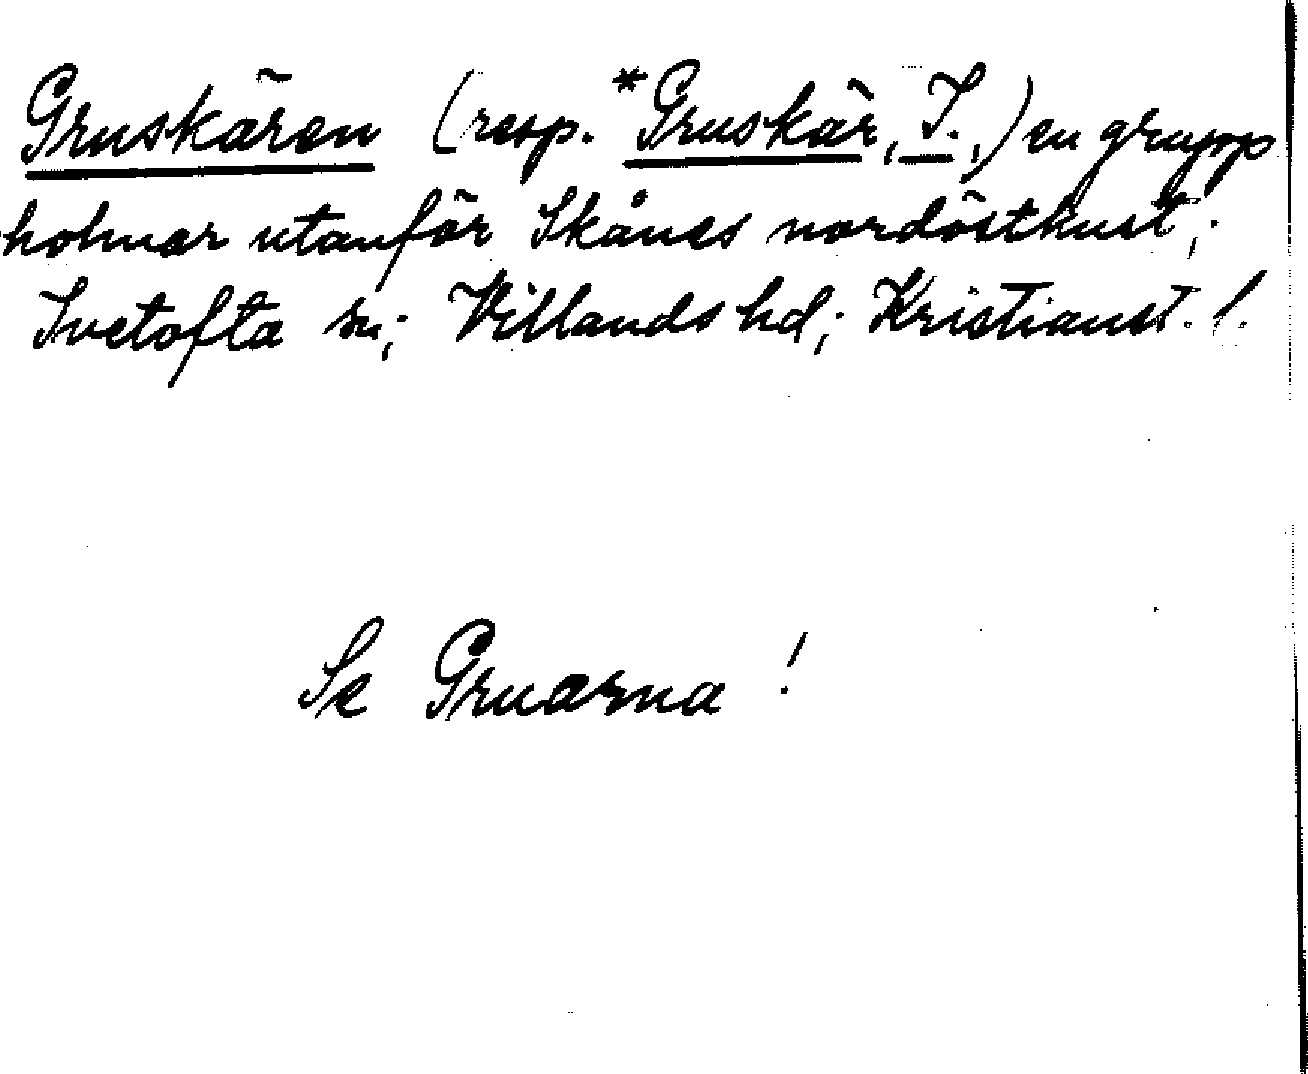 Gruskären (resp. *Gruskär, I.,) en grupp
holmar utanför Skånes nordöstkust;
Ivetofta sn; Villands hd; Kristianst. l.
Se Gruarna!